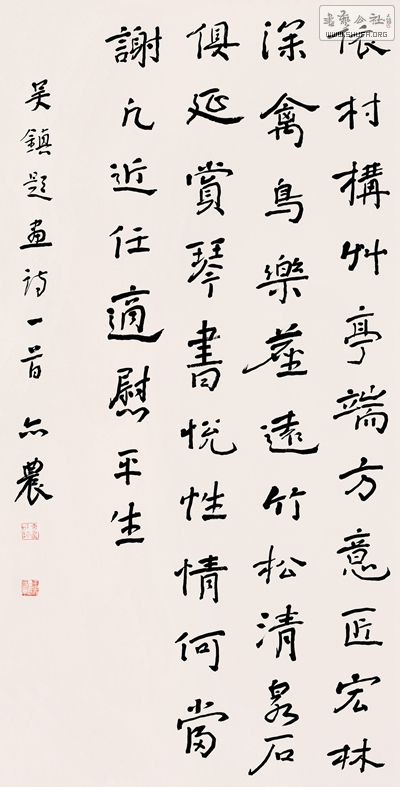 書藝公社
WWW.SHUFA.ORG
依村構艸亭端方意匠宏林
深禽鳥樂塵遠竹松清泉石
俱延賞琴書悦性情何當
謝凡近任適慰平生
吴鎮題畫詩一首亦農